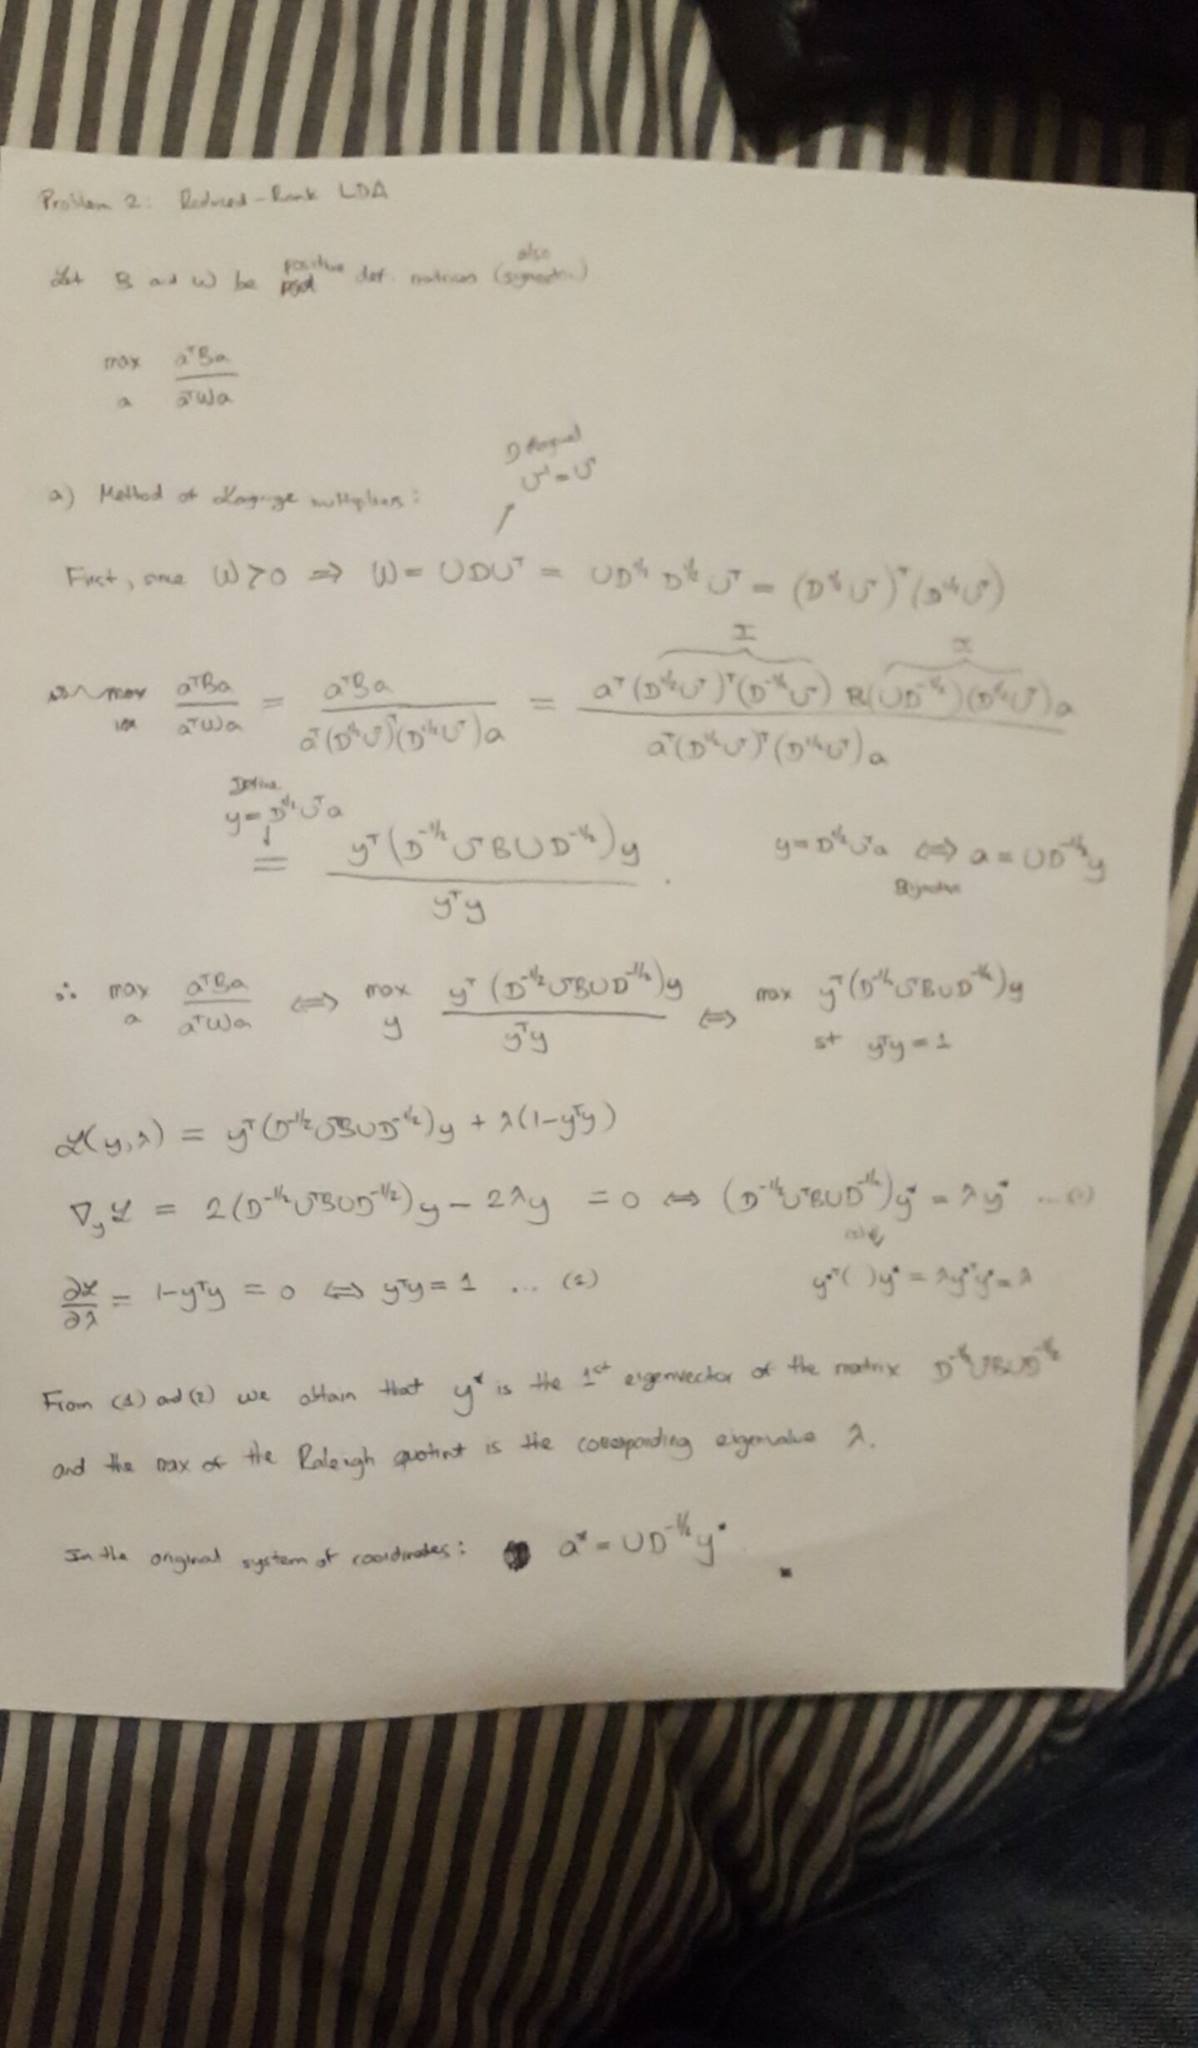 Problem 2: Reduced-Rank LDA
also
positive
Let B and W be def. matrices (symmetric)
max aᵀBa / aᵀWa
a
D diagonal
U⁻¹ = Uᵀ
a) Method of Lagrange multipliers:
First, since W > 0 ⇒ W = UDUᵀ = UD^½ D^½ Uᵀ = (D^½Uᵀ)ᵀ(D^½Uᵀ)
I I
max aᵀBa / aᵀWa = aᵀBa / aᵀ(D^½Uᵀ)ᵀ(D^½Uᵀ)a = aᵀ(D^½Uᵀ)ᵀ(D^-½Uᵀ) B(UD^-½)(D^½Uᵀ)a / aᵀ(D^½Uᵀ)ᵀ(D^½Uᵀ)a
Define
y = D^½Uᵀa
↓
= yᵀ(D^-½UᵀBUD^-½)y / yᵀy . y = D^½Uᵀa ⇔ a = UD^-½y
Bijection
∴ max aᵀBa / aᵀWa ⇔ max yᵀ(D^-½UᵀBUD^-½)y / yᵀy ⇔ max yᵀ(D^-½UᵀBUD^-½)y
a y st yᵀy = 1
ℒ(y,λ) = yᵀ(D^-½UᵀBUD^-½)y + λ(1-yᵀy)
∇yℒ = 2(D^-½UᵀBUD^-½)y - 2λy = 0 ⇔ (D^-½UᵀBUD^-½)y* = λy* ... (1)
∂ℒ/∂λ = 1-yᵀy = 0 ⇔ yᵀy = 1 ... (2) y*ᵀ( )y* = λy*ᵀy* = λ
From (1) and (2) we obtain that y* is the 1st eigenvector of the matrix D^-½UᵀBUD^-½
and the max of the Raleigh quotint is the corresponding eigenvalue λ.
In the original system of coordinates: a* = UD^-½y*.